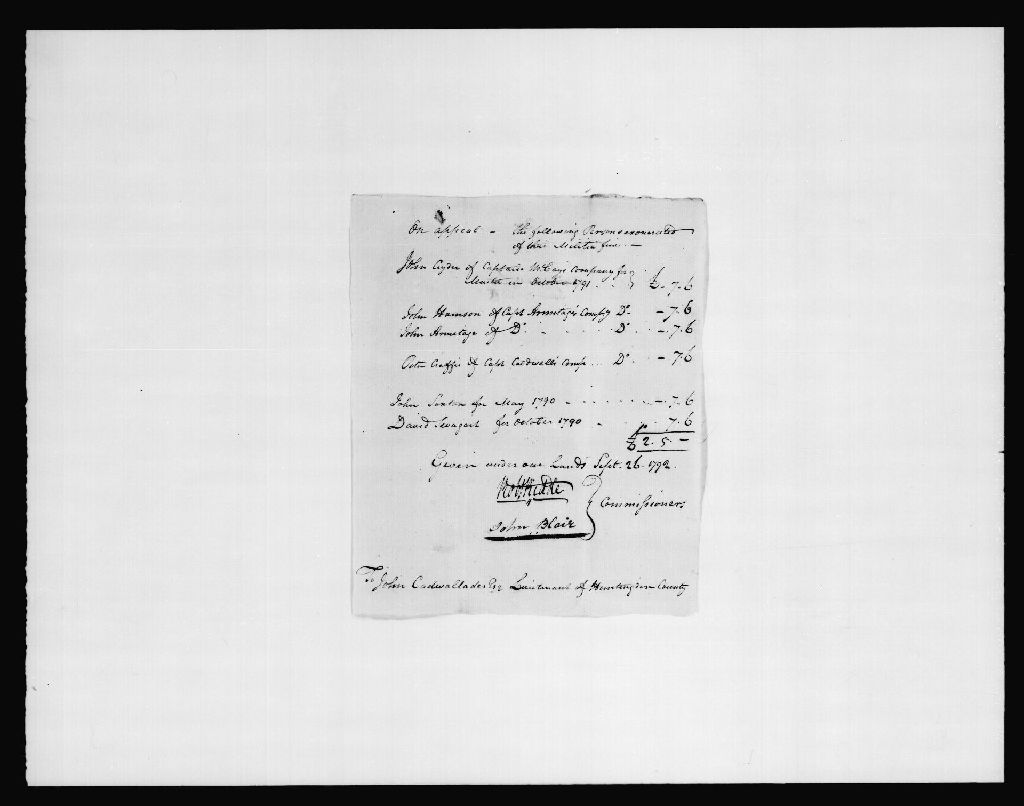 On appeal - The following Persons exonerated
of their Militia fine. -
John Cryder of Captain McCays Company for
Muster in October 1791 . . £ - 7 . 6
John Harrison of Capt Armitages Compy Do - 7 . 6
John Armitage of Do - . . . . . Do . . - 7 . 6
Peter of Capt Caldwells Comp . . . Do . - 7 6
John for May 1790 - . . . . . . - 7 . 6
David Swagart for October 1790 - . - 7 . 6
£ 2 . 5 . -
Given under our hands Sept. 26. 1792.
Robt Riddle
Commissioners
John Blair
To John Cadwallader Esqr Lieutenant of Huntingdon County